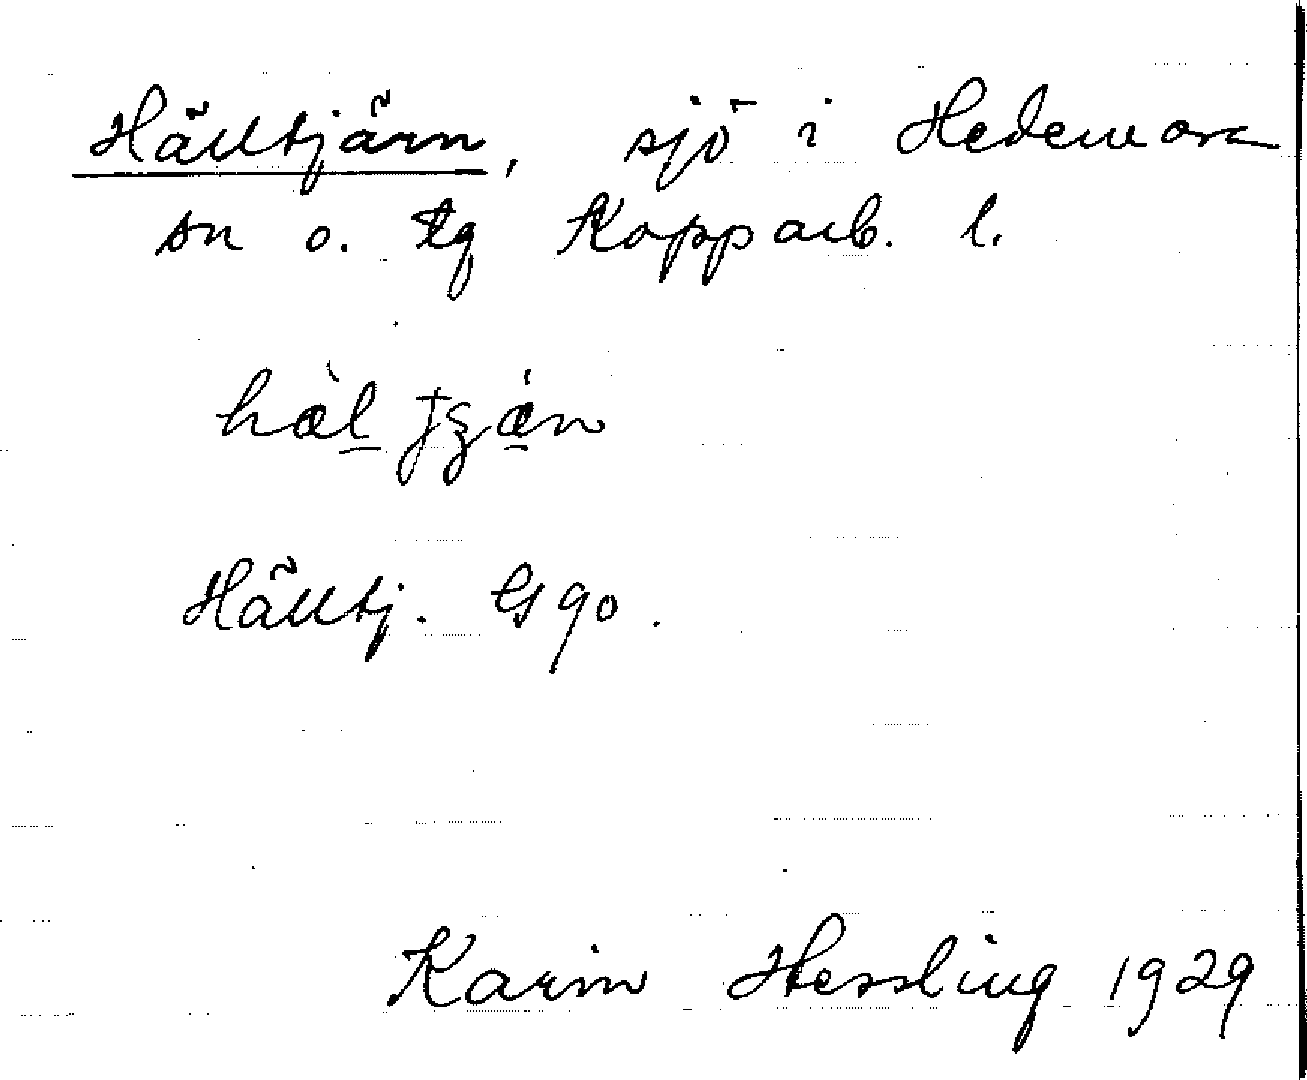 Hälltjärn, sjö i Hedemora
sn o. tg Kopparb. l.
hæ̀l ʈʂæ̀n
Hälltj. G 90.
Karin Hessling 1929